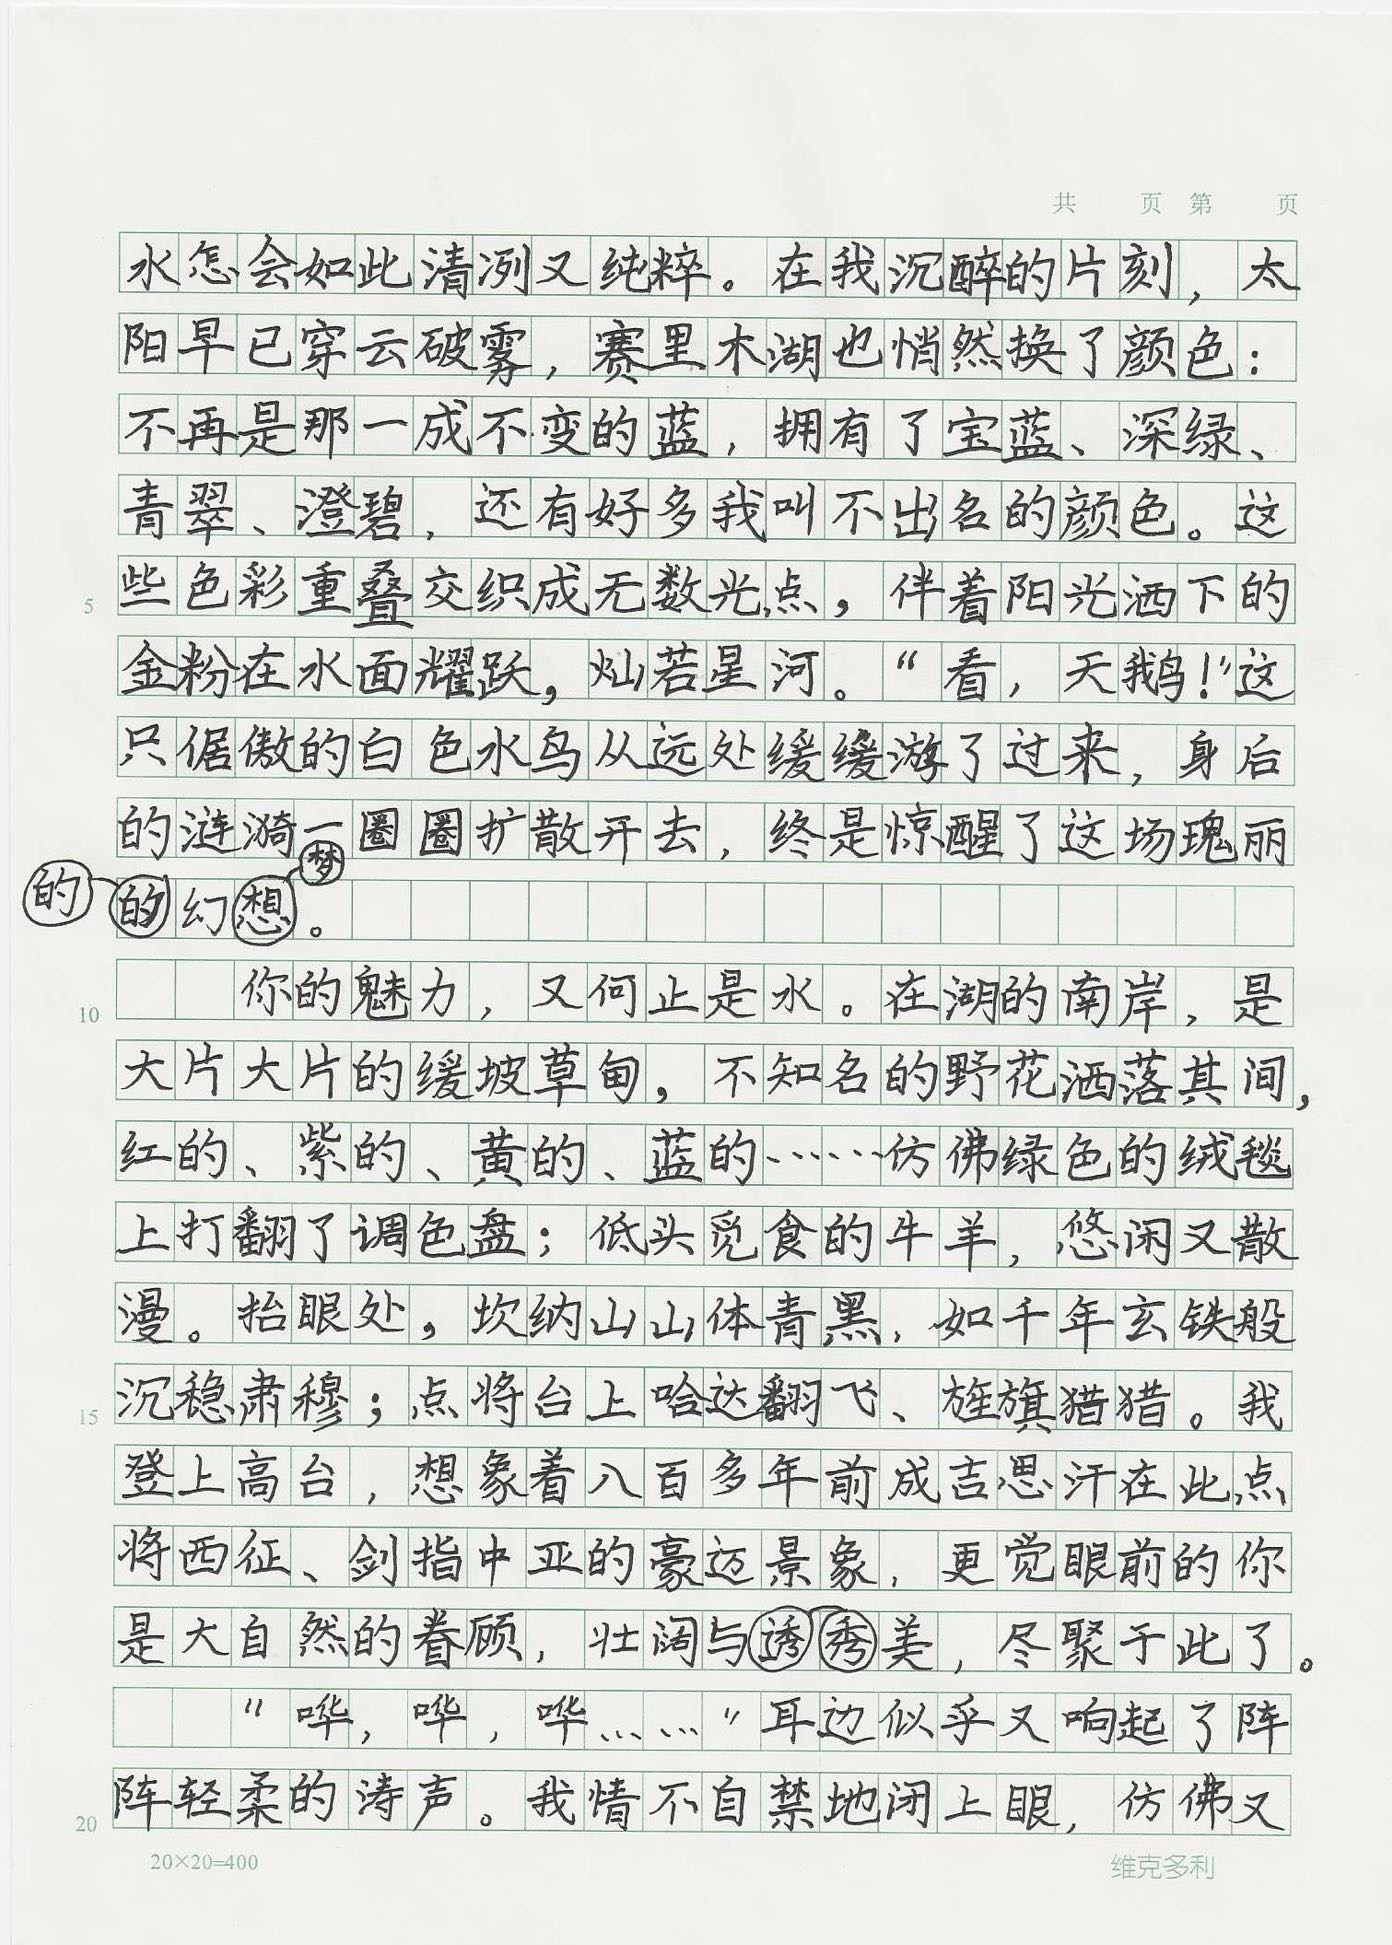 共 页 第 页
水怎会如此清冽又纯粹。在我沉醉的片刻，太
阳早已穿云破雾，赛里木湖也悄然换了颜色：
不再是那一成不变的蓝，拥有了宝蓝、深绿、
青翠、澄碧，还有好多我叫不出名的颜色。这
5 些色彩重叠交织成无数光点，伴着阳光洒下的
金粉在水面耀跃，灿若星河。“看，天鹅！”这
只倨傲的白色水鸟从远处缓缓游了过来，身后
的涟漪一圈圈扩散开去，终是惊醒了这场瑰丽
梦
的 的幻想。
10 你的魅力，又何止是水。在湖的南岸，是
大片大片的缓坡草甸，不知名的野花洒落其间，
红的、紫的、黄的、蓝的……仿佛绿色的绒毯
上打翻了调色盘；低头觅食的牛羊，悠闲又散
漫。抬眼处，坎纳山山体青黑，如千年玄铁般
15 沉稳肃穆；点将台上哈达翻飞、旌旗猎猎。我
登上高台，想象着八百多年前成吉思汗在此点
将西征、剑指中亚的豪迈景象，更觉眼前的你
是大自然的眷顾，壮阔与透秀美，尽聚于此了。
“哗，哗，哗……”耳边似乎又响起了阵
20 阵轻柔的涛声。我情不自禁地闭上眼，仿佛又
20×20=400 维克多利